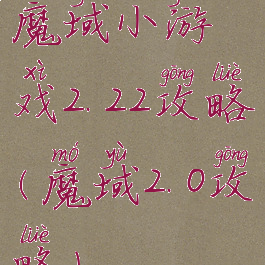 魔域小游
xì gōng lüè
戏2.22攻略
mó yù gōng
(魔域2.0攻
lüè
略)